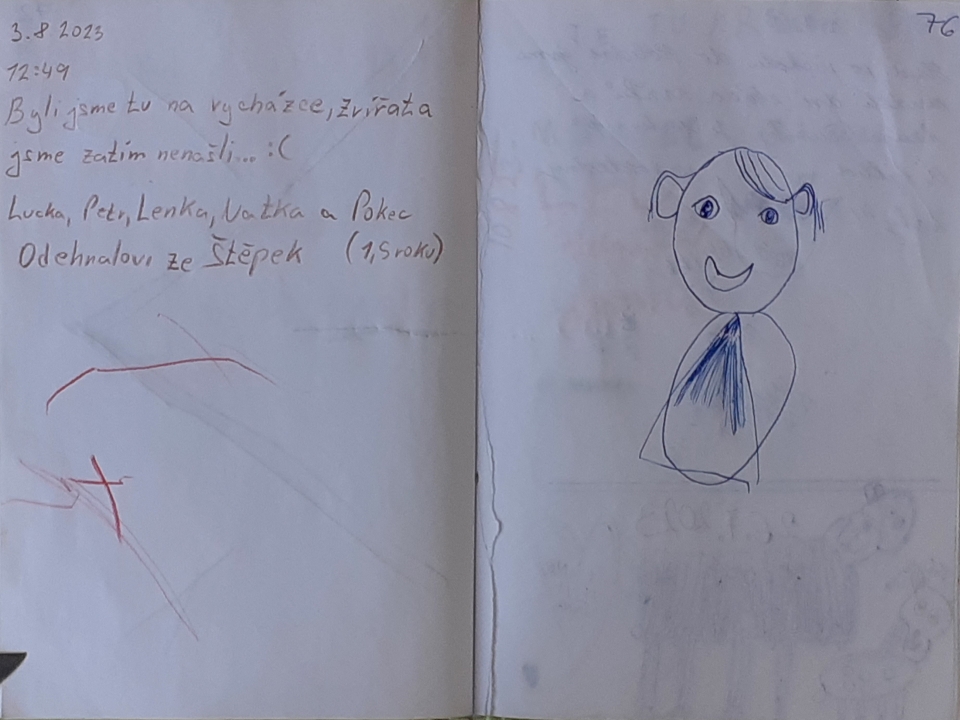 3.8 2023
12:49
Byli jsme tu na vycházce, zvířata
jsme zatím nenašli... :(
Lucka, Petr, Lenka, a Pokec
Odehnalovi ze Štěpek (1,5 roku)
76